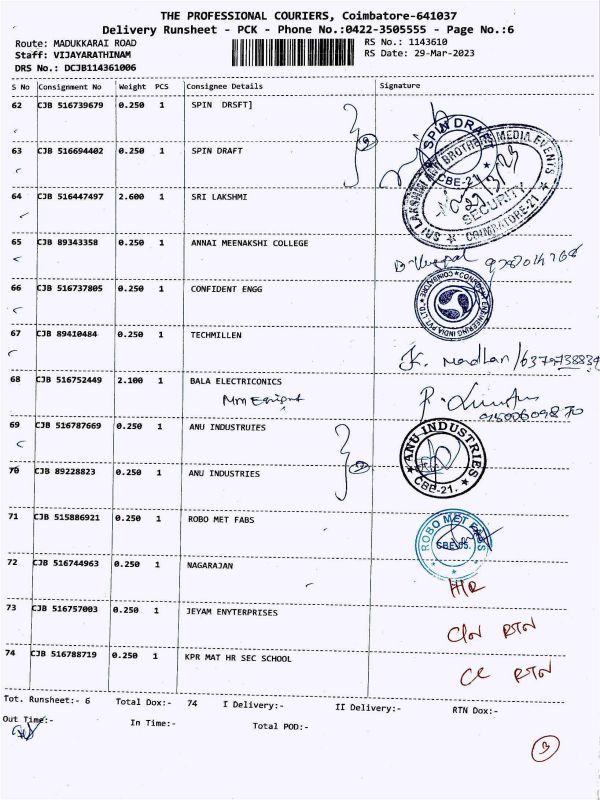 THE PROFESSIONAL COURIERS, Coimbatore-641037
Delivery Runsheet - PCK - Phone No.:0422-3505555 - Page No.:6
Route: MADUKKARAI ROAD RS No.: 1143610
Staff: VIJAYARATHINAM RS Date: 29-Mar-2023
DRS No.: DCJB114361006
S No Consignment No Weight PCS Consignee Details Signature
62 CJB 516739679 0.250 1 SPIN DRSFT]
63 CJB 516694402 0.250 1 SPIN DRAFT
SPIN DRAFT
CBE-21
64 CJB 516447497 2.600 1 SRI LAKSHMI
SRI LAKSHMI BROTHERS MEDIA EVENTS
SECURITY
COIMBATORE-21
65 CJB 89343358 0.250 1 ANNAI MEENAKSHI COLLEGE
66 CJB 516737805 0.250 1 CONFIDENT ENGG
CONFIDENT ENGINEERING INDIA PVT. LTD. COIMBATORE
67 CJB 89410484 0.250 1 TECHMILLEN
68 CJB 516752449 2.100 1 BALA ELECTRICONICS
69 CJB 516787669 0.250 1 ANU INDUSTRUIES
70 CJB 89228823 0.250 1 ANU INDUSTRIES
ANU INDUSTRIES
CBE-21.
71 CJB 515886921 0.250 1 ROBO MET FABS
ROBO MET FABS
72 CJB 516744963 0.250 1 NAGARAJAN
73 CJB 516757003 0.250 1 JEYAM ENYTERPRISES RTN
74 CJB 516788719 0.250 1 KPR MAT HR SEC SCHOOL RTN
Tot. Runsheet:- 6 Total Dox:- 74 I Delivery:- II Delivery:- RTN Dox:-
Out Time:- In Time:- Total POD:-